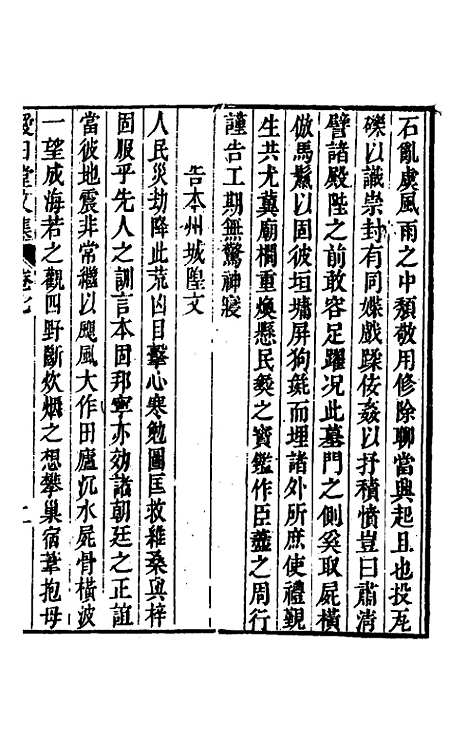 石亂虞風雨之中頹敬用修除聊當興起且也投瓦
礫以識崇封有同媟戲蹂佞姦以抒積憤豈曰肅清
譬諸殿陛之前敢容足躍況此墓門之側奚取屍橫
倣馬鬣以固彼垣墉屏狗彘而埋諸外所庶使禮覲
生共尤冀廟楣重煥懸民彝之寶鑑作臣藎之周行
謹告工期無驚神寢
告本州城隍文
人民災劫降此荒凶目擊心寒勉圖匡救維桑與梓
固服乎先人之訓言本固邦寧亦効諸朝廷之正誼
當彼地震非常繼以颶風大作田廬沉水屍骨橫波
一望成海若之觀四野斷炊煙之想攀巢宿葦抱母
愛日堂文集 卷七 二